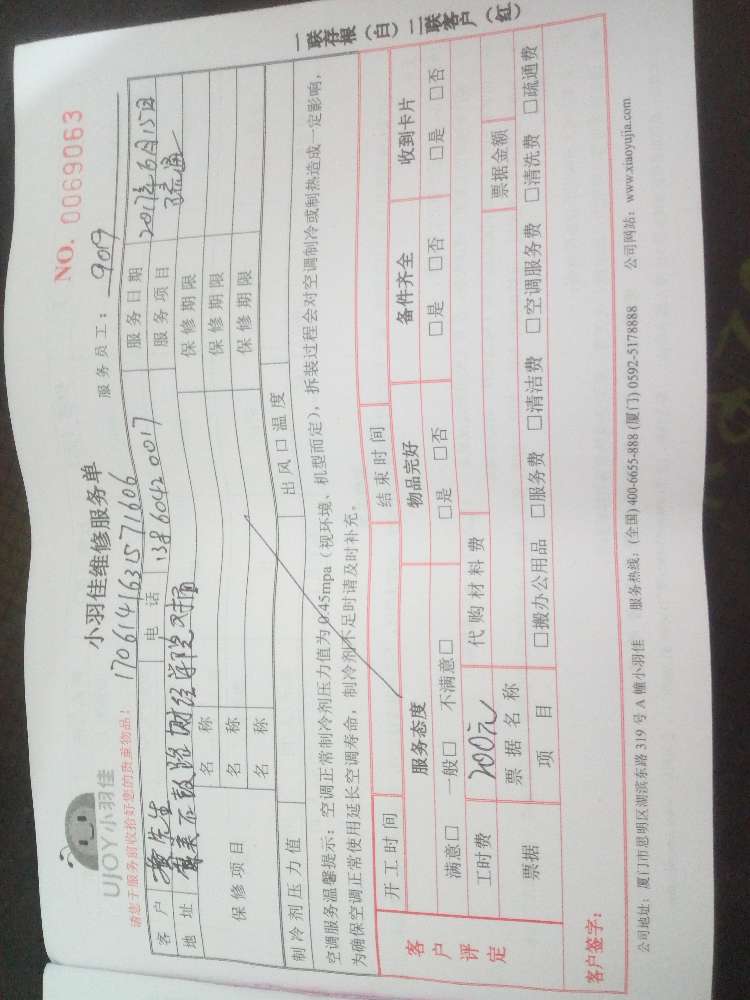 UJOY小羽佳
小羽佳维修服务单
NO. 0069063
请您于服务前收拾好您的贵重物品！
170614163157 1606
服务员工：9019
客户 黄先生 电话 138 6042 0017 服务日期 2017年6月15日
地址 财经学院对面 服务项目 疏通
保修项目 名称 保修期限
名称 保修期限
名称 保修期限
制冷剂压力值 出风口温度
空调服务温馨提示：空调正常制冷剂压力值为0.45mpa（视环境、机型而定），拆装过程会对空调制冷或制热造成一定影响，
为确保空调正常使用延长空调寿命，制冷剂不足时请及时补充。
客户评定 开工时间 结束时间
服务态度 物品完好 备件齐全 收到卡片
满意□ 一般□ 不满意□ □是 □否 □是 □否 □是 □否
工时费 200元 代购材料费
票据 票据名称 票据金额
项目 □搬办公用品 □服务费 □清洁费 □空调服务费 □清洗费 □疏通费
客户签字：
公司地址：厦门市思明区湖滨东路319号A幢小羽佳 服务热线：(全国) 400-6655-888 (厦门) 0592-5178888 公司网站：www.xiaoyujia.com
一联存根（白）二联客户（红）